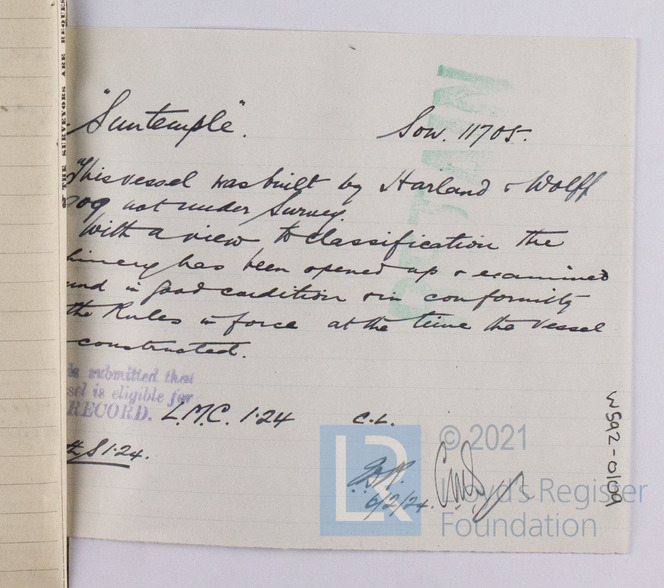 "Suntemple". Sow. 11705.
This vessel was built by Harland & Wolff
09 not under Survey.
With a view to classification the
hinery has been opened up & examined
und in good condition & in conformity
the Rules in force at the time the vessel
constructed.
is submitted that
sel is eligible for
RECORD. L.M.C. 1.24 C.L.
S 1.24.
6/2/24.
W592-0109
THE SURVEYORS ARE REQUES
LR
© 2021
Lloyd's Register
Foundation